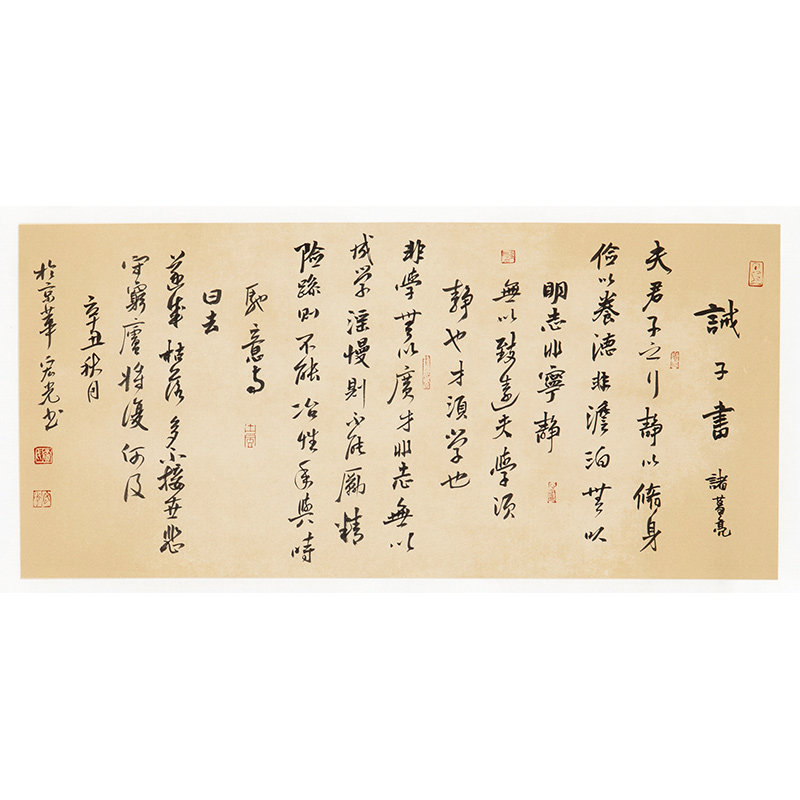 誡子書
諸葛亮
夫君子之行静以脩身
儉以養德非澹泊無以
明志非寧靜
無以致遠夫學須
靜也才須学也
非學無以廣才非志無以
成学淫慢則不能勵精
險躁則不能冶性年與時
馳意与
日去
遂成枯落多不接世悲
守窮廬將復何及
辛丑秋月
於京華宏光书